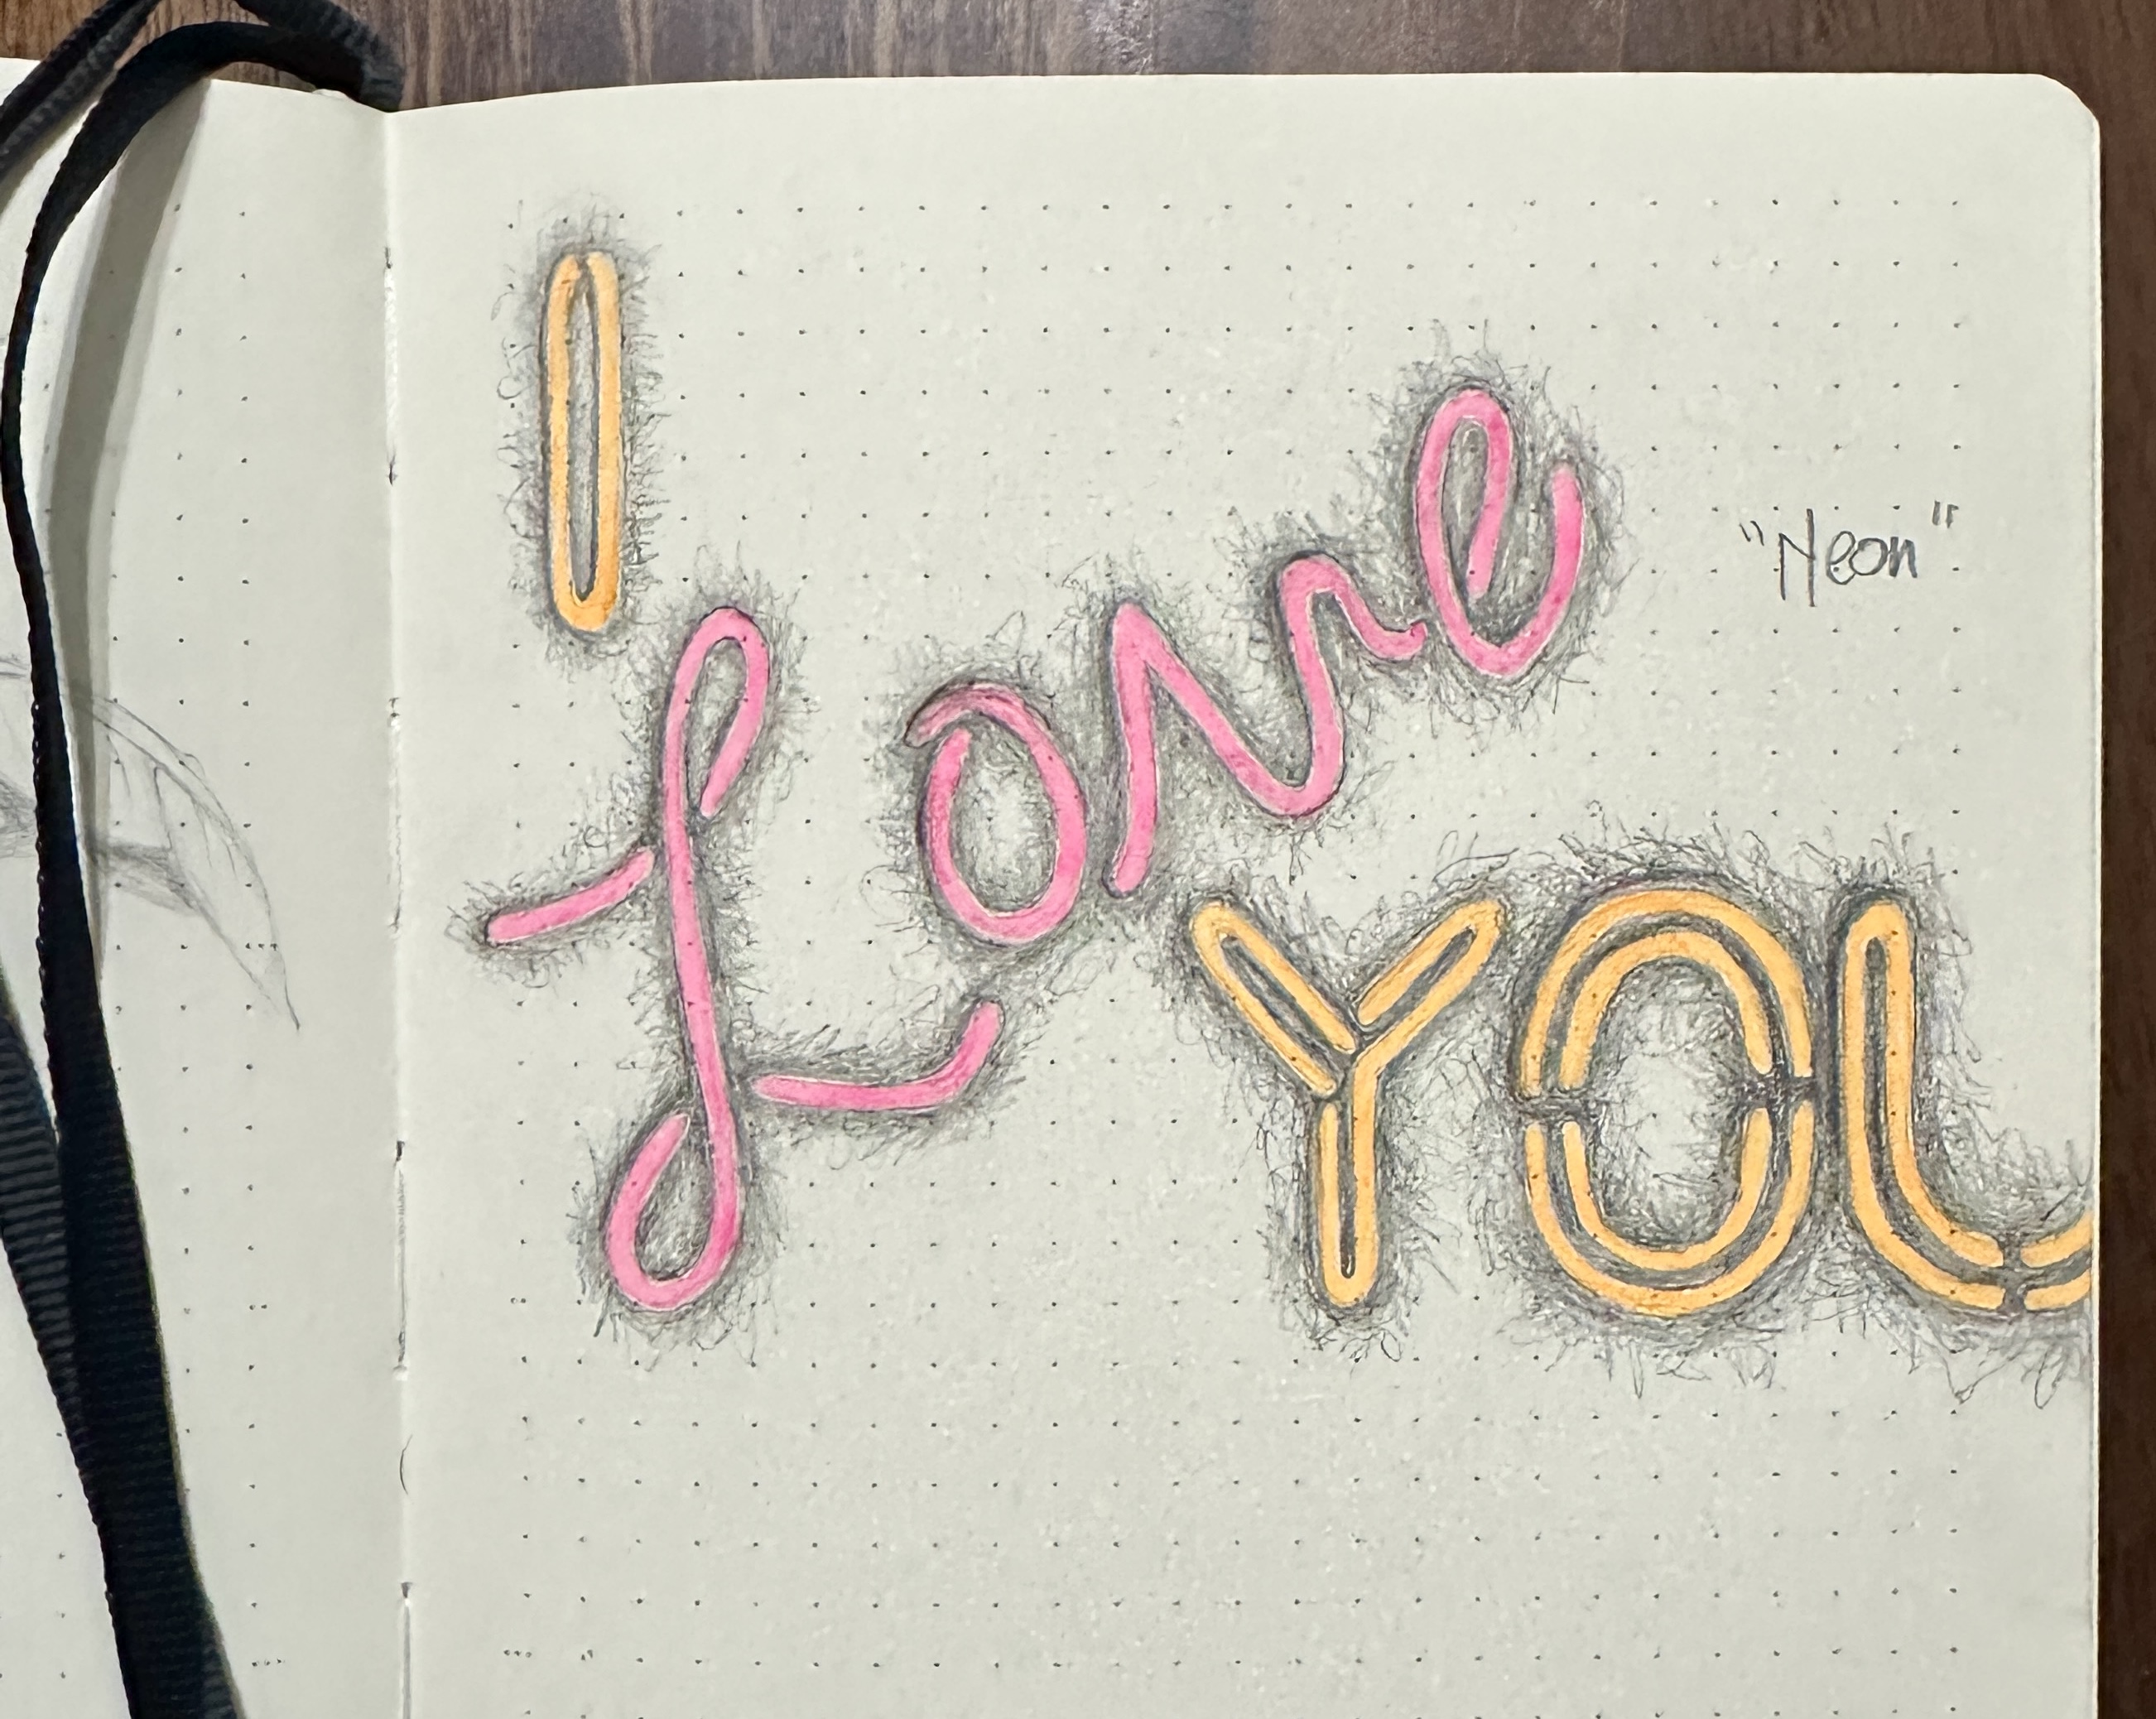 I
Love
"Neon"
YOU